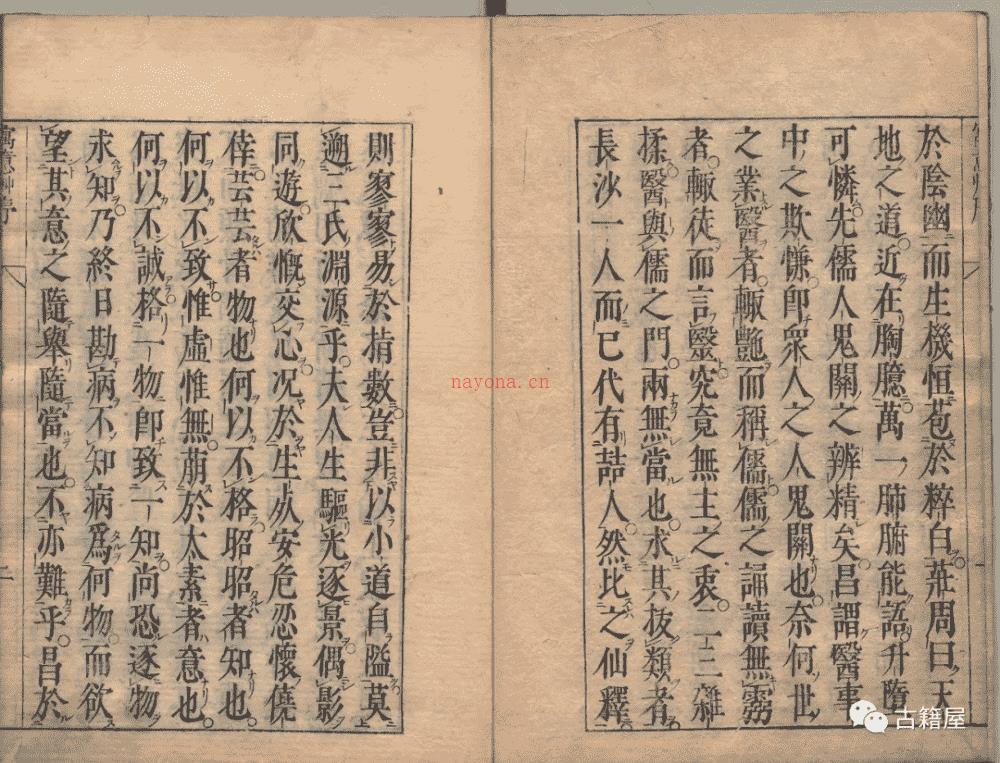 於陰幽而生機恒苞於粹白莊周曰天
地之道近在胸臆萬一肺腑能語升墮
可憐先儒人鬼關之辨精矣昌謂醫事
中之欺慊卽衆人之人鬼關也奈何世
之業醫者輙艷而稱儒儒之誦讀無靈
者輙徒而言醫究竟無主之衷二三雜
揉醫與儒之門兩無當也求其拔類者
長沙一人而已代有喆人然比之仙釋
則寥寥易於指數豈非以小道自隘莫
遡三氏淵源乎夫人生驅光逐景偶影
同遊欣慨交心况於生死安危忍懷僥
倖芸芸者物也何以不格昭昭者知也
何以不致惟虛惟無萠於太素者意也
何以不誠格一物卽致一知尚恐逐物
求知乃終日勘病不知病爲何物而欲
望其意之隨舉隨當也不亦難乎昌於
寓意草序
二
nayona.cn
古籍屋